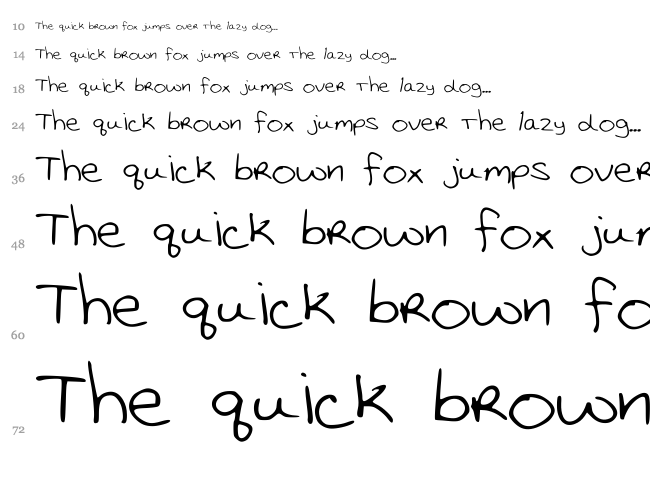 10 The quick brown fox jumps over The lazy dog...
14 The quick brown fox jumps over The lazy dog...
18 The quick brown fox jumps over The lazy dog...
24 The quick brown fox jumps over The lazy dog...
36 The quick brown fox jumps over
48 The quick brown fox jur
60 The quick brown fo
72 The quick brown